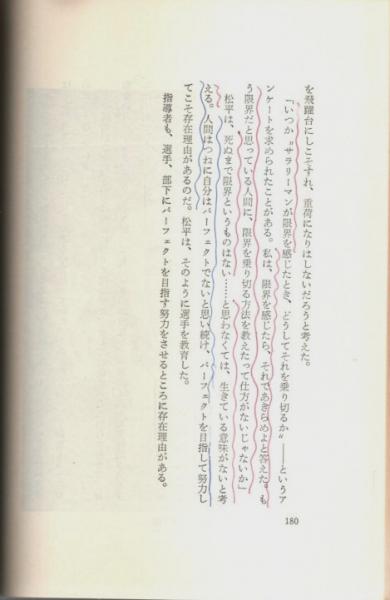 を飛躍台にしこそすれ、重荷になりはしないだろうと考えた。
「いつか〝サラリーマンが限界を感じたとき、どうしてそれを乗り切るか〟――というア
ンケートを求められたことがある。私は、限界を感じたら、それであきらめよと答えた。も
う限界だと思っている人間に、限界を乗り切る方法を教えたって仕方がないじゃないか」
松平は、死ぬまで限界というものはない……と思わなくては、生きている意味がないと考
える。人間はつねに自分はパーフェクトでないと思い続け、パーフェクトを目指して努力し
てこそ存在理由があるのだ。松平は、そのように選手を教育した。
指導者も、選手、部下にパーフェクトを目指す努力をさせるところに存在理由がある。
180